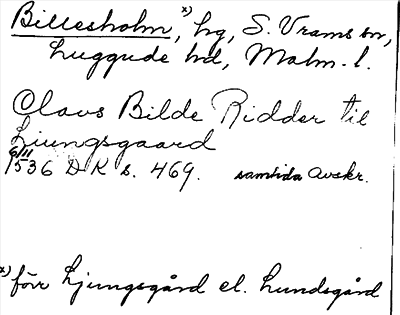 Billesholm, x) hg, S. Vrams sn,
Luggude hd, Malm. l.
Claus Bilde Ridder til
Liungsgaard
6/11
1536 DK s. 469. samtida Avskr.
x) förr Ljungsgård el. Lundsgård